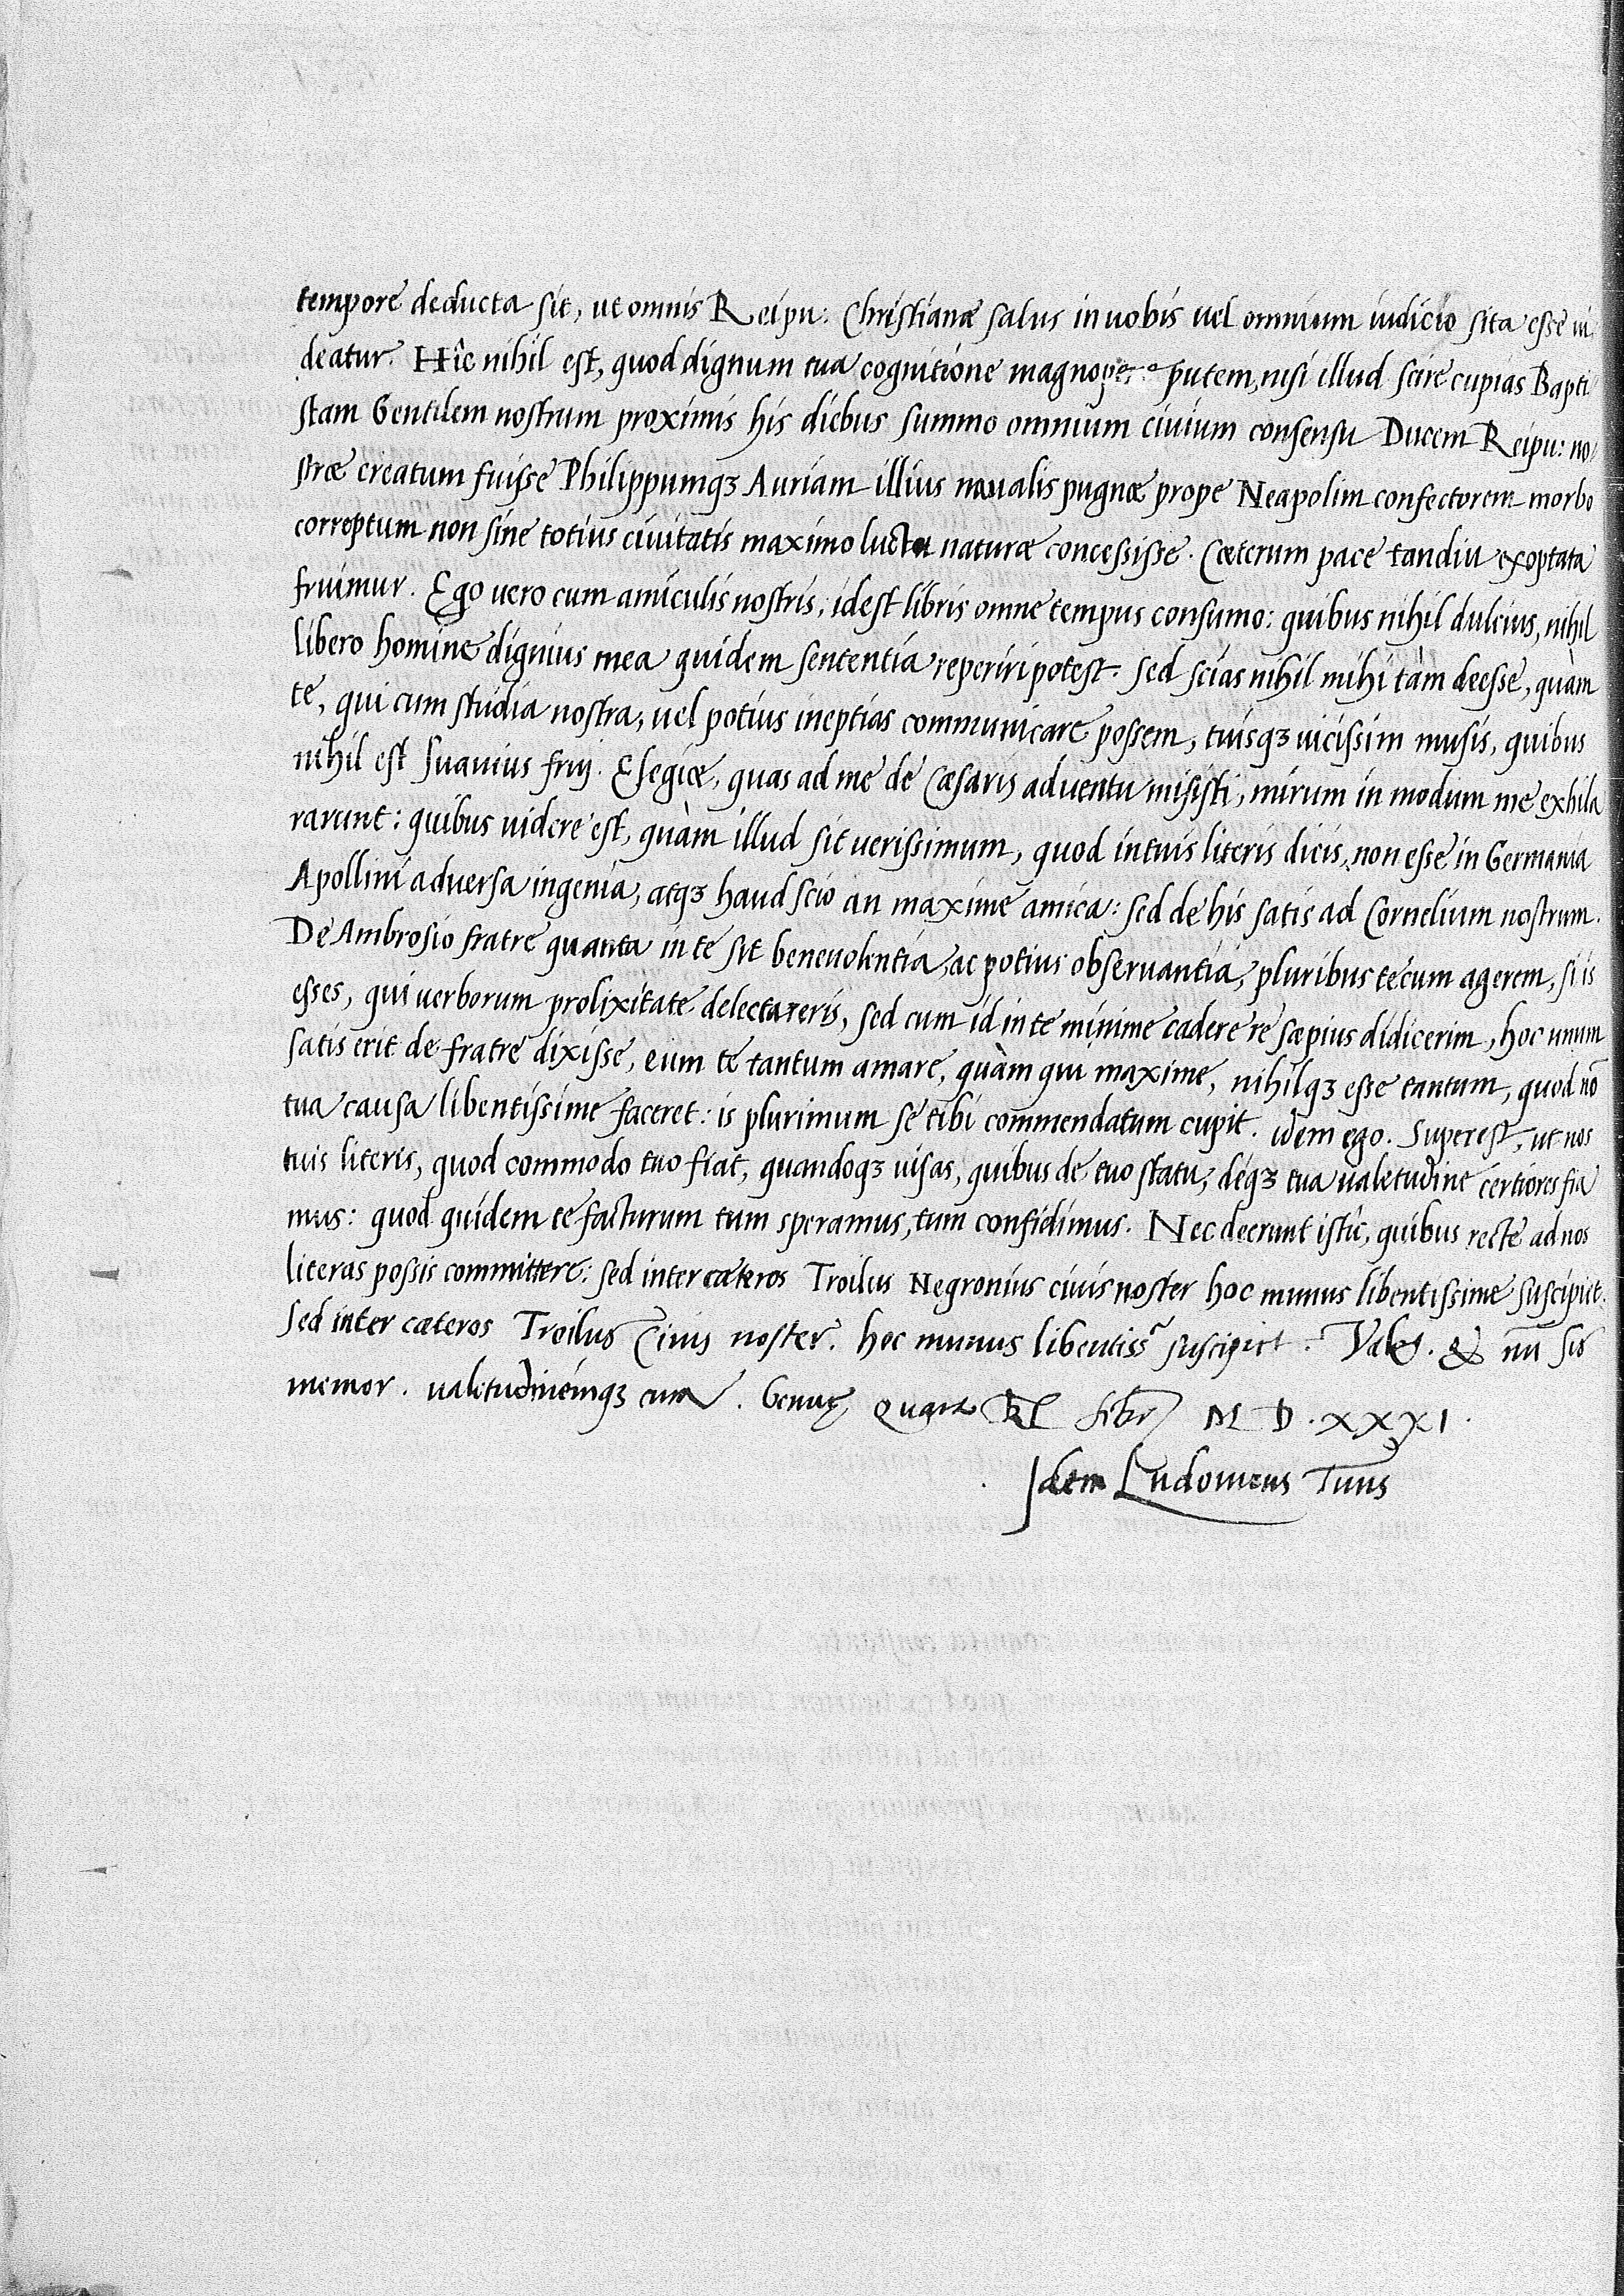 tempore deducta sit, ut omnis Reipu: Christianæ salus in uobis uel omnium iudicio sita esse ui
deatur. Hîc nihil est, quod dignum tua cognitione magnopere putem, nisi illud scire cupias Bapti
stam Gentilem nostrum proximis his diebus summo omnium ciuium consensu Ducem Reipu: no
stræ creatum fuisse Philippumqꝫ Auriam illius naualis pugnæ prope Neapolim confectorem morbo
correptum non sine totius ciuitatis maximo luctu naturæ concessisse. Cæterum pace tandiu exoptata
fruimur. Ego uero cum amiculis nostris, idest libris omne tempus consumo: quibus nihil dulcius, nihil
libero homine dignius mea quidem sententia reperiri potest. sed scias nihil mihi tàm deesse, quàm
te, qui cum studia nostra, uel potius ineptias communicare possem, tuisqꝫ uicissim musis, quibus
nihil est suauius frui. Elegiæ, quas ad me de Cæsaris aduentu misisti, mirum in modum me exhila
rarunt: quibus uidere est, quàm illud sit uerissimum, quod in tuis literis dicis, non esse in Germania
Apollini aduersa ingenia, atqꝫ haud scio an maxime amica: sed de his satis ad Cornelium nostrum.
De Ambrosio fratre quanta in te sit beneuolentia, ac potius obseruantia, pluribus tecum agerem, si is
esses, qui uerborum prolixitate delectareris, sed cum id in te minime cadere re sæpius didicerim, hoc unum
satis erit de fratre dixisse, eum te tantum amare, quàm qui maxime, nihilqꝫ esse tantum, quod nō
tua causa libentissime faceret: is plurimum se tibi commendatum cupit. idem ego. Superest, ut nos
tuis literis, quod commodo tuo fiat, quandoqꝫ uisas, quibus de tuo statu, deqꝫ tua ualetudine certiores fia
mus: quod quidem te facturum tum speramus, tum confidimus. Nec deerunt istic, quibus recte ad nos
literas possis committere: sed inter cæteros Troilus Negronius ciuis noster hoc munus libentissime suscipiet.
Sed inter cæteros Troilus Ciuis noster. hoc munus libentiss. suscipiet. Vale. &
memor. ualetudinemqꝫ cura. Genuę Quarto KL M D. XXXI.
Idem Ludouicus Tuus